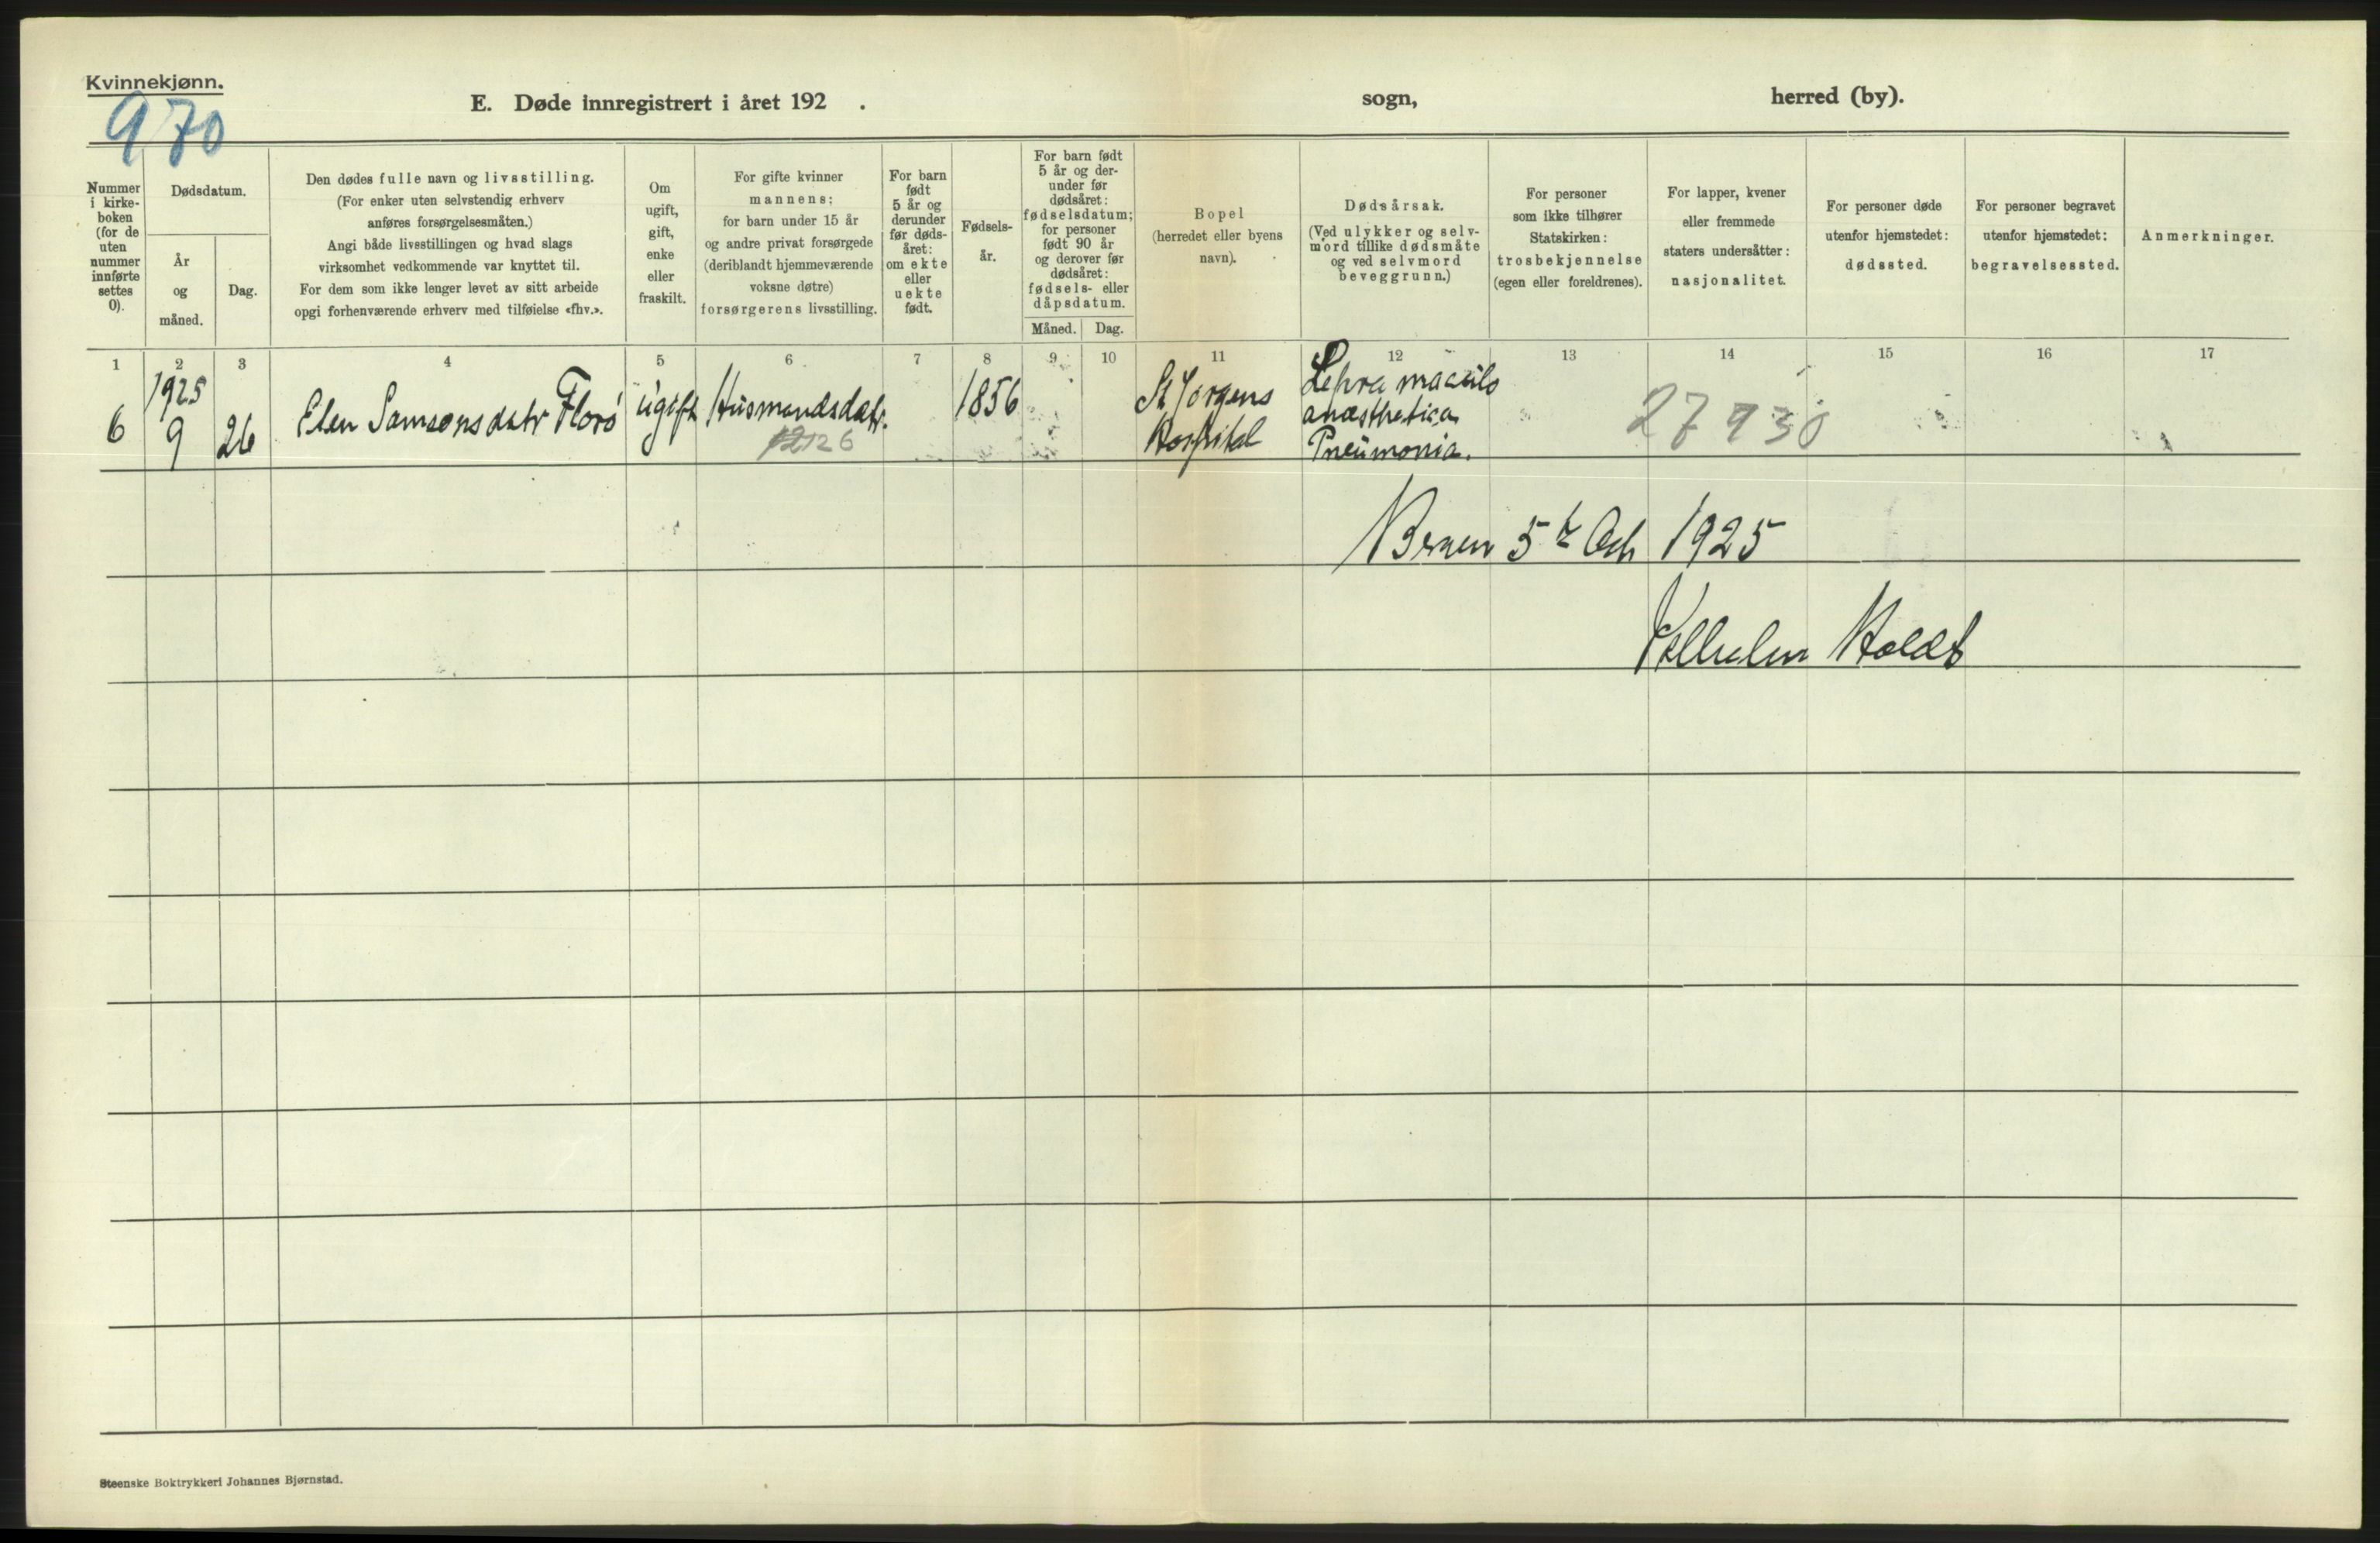 Kvinnekjønn.
970
E. Døde innregistrert i året 192 .
sogn,
herred (by).
Nummer
i kirke-
boken
(for de
uten
nummer
innførte
settes
0).
Dødsdatum.
År
og
måned.
Dag.
Den dødes fulle navn og livsstilling.
(For enker uten selvstendig erhverv
anføres forsørgelsesmåten.)
Angi både livsstillingen og hvad slags
virksomhet vedkommende var knyttet til.
For dem som ikke lenger levet av sitt arbeide
opgi forhenværende erhverv med tilføielse «fhv.».
Om
ugift,
gift,
enke
eller
fraskilt.
For gifte kvinner
mannens;
for barn under 15 år
og andre privat forsørgede
(deriblandt hjemmeværende
voksne døtre)
forsørgerens livsstilling.
For barn
født
5 år og
derunder
før døds-
året:
om ekte
eller
uekte
født.
Fødsels-
år.
For barn født
5 år og der-
under før
dødsåret:
fødselsdatum;
for personer
født 90 år
og derover før
dødsåret:
fødsels- eller
dåpsdatum.
Måned.
Dag.
Bopel
(herredet eller byens
navn).
Dødsårsak.
(Ved ulykker og selv-
mord tillike dødsmåte
og ved selvmord
beveggrunn.)
For personer
som ikke tilhører
Statskirken:
trosbekjennelse
(egen eller foreldrenes).
For lapper, kvener
eller fremmede
staters undersåtter:
nasjonalitet.
For personer døde
utenfor hjemstedet:
dødssted.
For personer begravet
utenfor hjemstedet:
begravelsessted.
Anmerkninger.
1 2 3 4 5 6 7 8 9 10 11 12 13 14 15 16 17
1925
6 9 26 Elen Samsonsdatr Florø ugift Husmandsdatr. 1856
12126
St Jørgens
Hospital
Lepra maculo
anæsthetica
Pneumonia.
27930
Bergen 5te Oct 1925
Vilhelm Holdt
Steenske Boktrykkeri Johannes Bjørnstad.